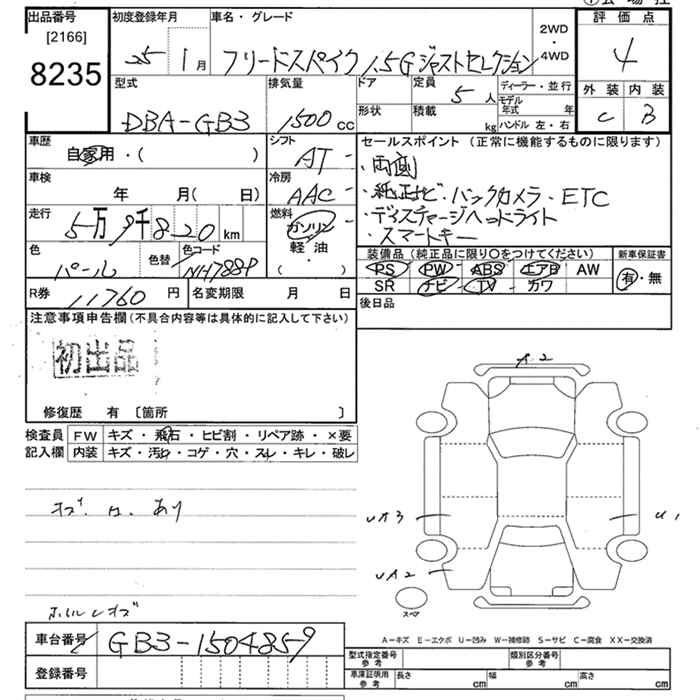 出品番号 初度登録年月 車名・グレード 評価点
[2166]
8235
25 1月 フリードスパイク 1.5G ジャストセレクション
2WD
・
4WD
4
型式 排気量 ドア 定員 ディーラー・並行 外装 内装
5人 モデル年式 年
DBA-GB3 1500 CC 形状 積載 kg ハンドル 左・右 C B
車歴 自家用・( ) シフト AT セールスポイント (正常に機能するものに限ります)
・両側
車検 年 月( 日) 冷房 AAC ・純正ナビ・バックカメラ・ETC
走行 5万9千820km 燃料 ガソリン ・ディスチャージヘッドライト
軽・油 ・スマートキー
( ・ )
色 パール 色替 色コード NH788P
装備品(純正品に限り○をつけてください) 新車保証書
PS PW ABS エアB AW 有・無
SR ナビ TV カワ
R券 11760円 名変期限 月 日 後日品
注意事項申告欄(不具合内容等は具体的に記入して下さい)
初出品
修復歴 有 〔箇所 〕
検査員 FW キズ・飛石・ヒビ割・リペア跡・×要
記入欄 内装 キズ・汚れ・コゲ・穴・スレ・キレ・破レ
A2
UA3
U1
UA2
スペア
ホイルキズ
A－キズ E－エクボ U－凹み W－補修跡 S－サビ C－腐食 XX－交換済
車台番号 GB3-1504859
型式指定番号 参考 類別区分番号 参考
登録番号
車庫証明用 参考 長さ cm 幅 cm 高さ cm